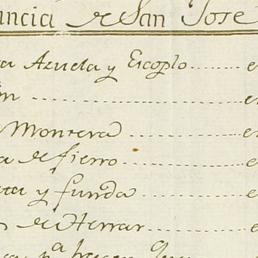 ancia de San Jose
a Azuela y Escoplo ...... e
n ...... e
Montera ...... e
a de fierro ...... e
y funda ...... e
de Herrar ...... e